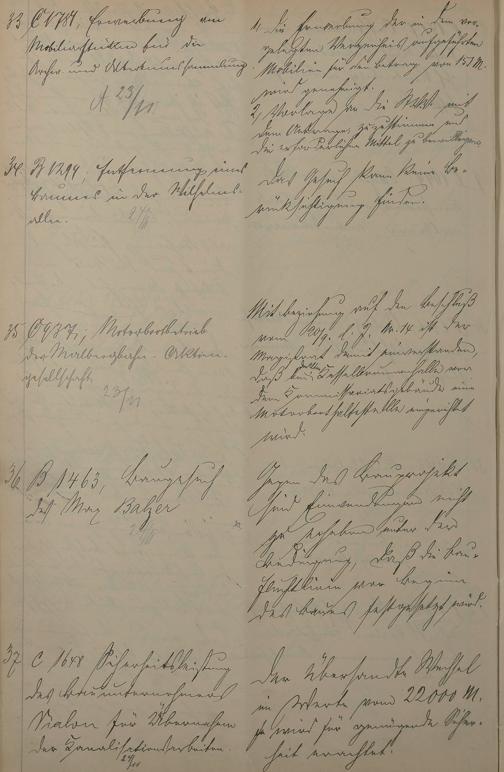 33 C 1787, Erwerbung von
Mobiliarstücken für die
Archiv- und Altertumssammlung
A 23/11
1. Die Erwerbung der in dem vor-
gelegten Verzeichnis aufgeführten
Mobilien für den Betrag von 151 M.
wird genehmigt.
2, Vorlage an die St.V.V. mit
dem Antrage, zuzustimmen und
die erforderlichen Mittel zu bewilligen.
34. B 1294, Entfernung eines
Baumes in der Wilhelms-
allee.
Das Gesuch kann keine Be-
rücksichtigung finden.
35 C 937, Motorbootbetrieb
der Malbergbahn-Aktien-
gesellschaft.
23/11
Mit Beziehung auf den Beschluß
vom l. J. Nr. 14 ist der
Magistrat damit einverstanden,
daß Kesselbrunnenhalle vor
dem Commissariatsgebäude eine
Motorboothaltestelle eingerichtet
wird.
36 B 1463, Baugesuch
des Max Balzer
Gegen das Bauprojekt
sind Einwendungen nicht
zu erheben unter der
Bedingung, daß die Bau-
fluchtlinie vor Beginn
des Baues festgesetzt wird.
37 C 1648 Sicherheitsleistung
des Bauunternehmers
für Übernahme
der Kanalisationsarbeiten.
Der übersandte Wechsel
im Werte von 22000 M.
wird für genügende Sicher-
heit erachtet.